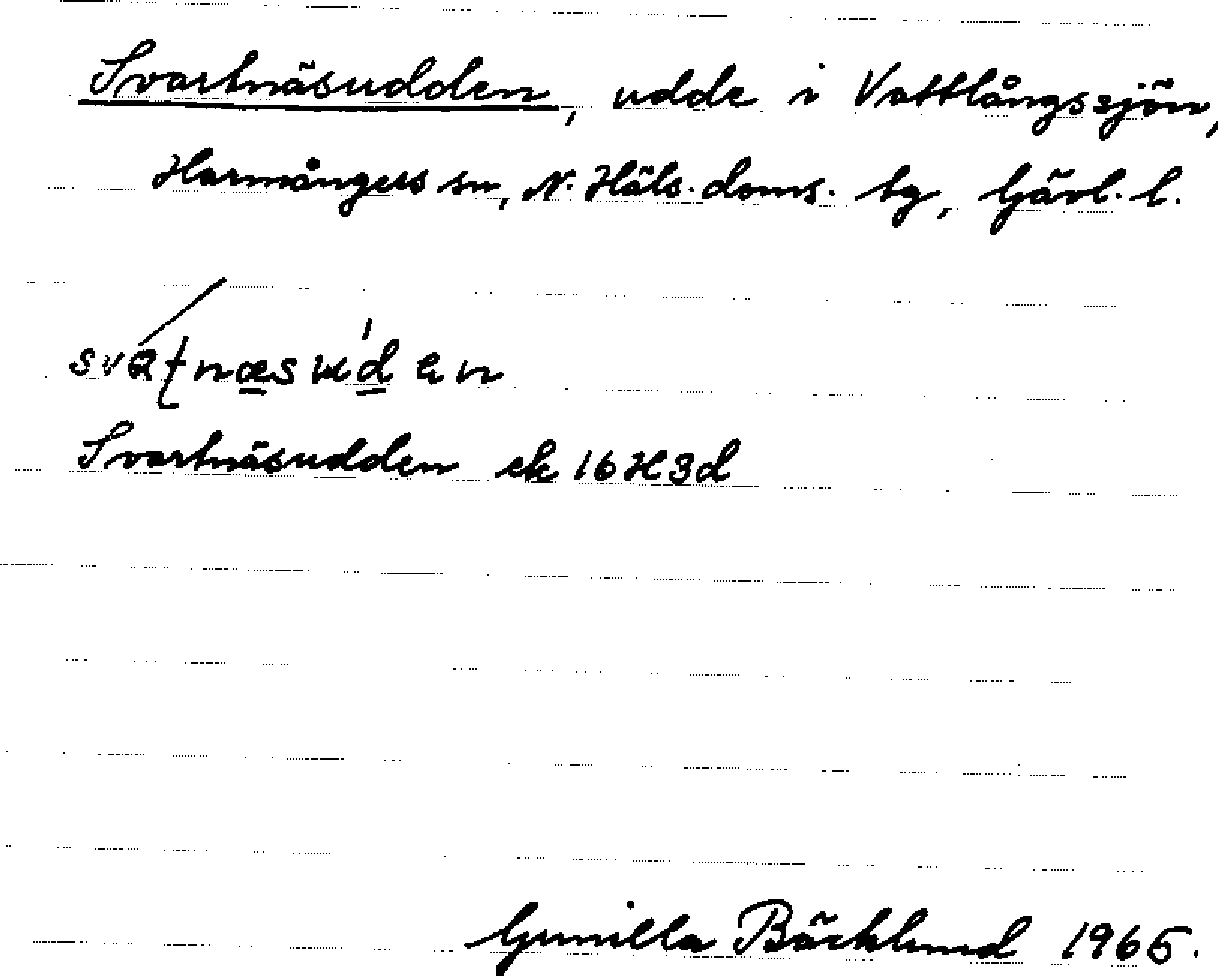 Svartnäsudden, udde i Vattlångssjön,
Harmångers sn, N. Häls. doms. tg, Gävl. l.
Svartnäsudden ek 16H3d
Gunilla Bäcklund 1965.